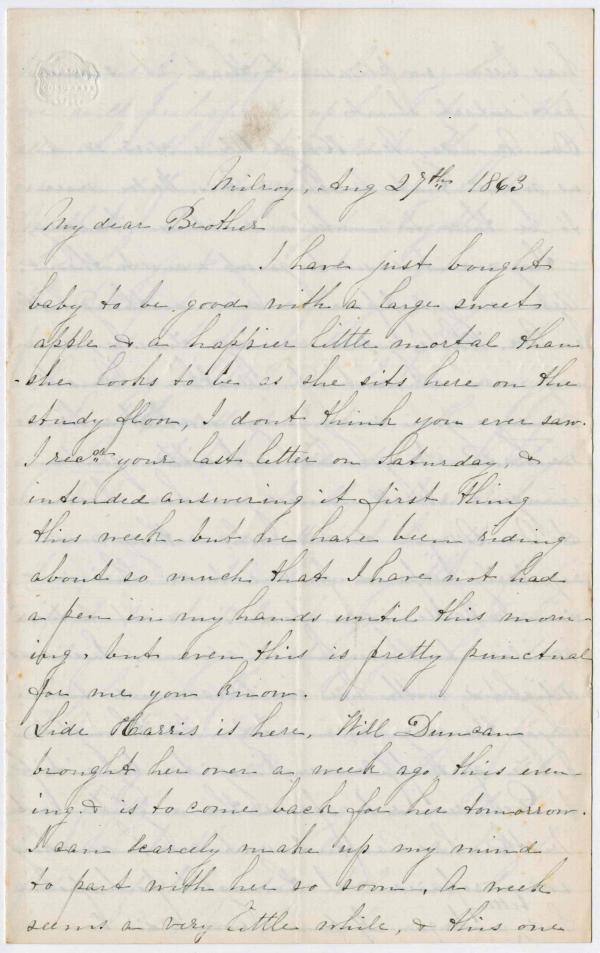 Milroy, Aug 27th 1863
My dear Brother
I have just bought
baby to be good with a large sweet
apple & a happier little mortal than
she looks to be as she sits here on the
study floor, I dont think you ever saw.
I recd your last letter on Saturday, &
intended answering it first thing
this week - but we have been riding
about so much that I have not had
a pen in my hands until this morn-
ing, but even this is pretty punctual
for me you know.
Lide Harris is here, Will Duncan
brought her over a week ago this even-
ing & is to come back for her tomorrow.
I can scarcely make up my mind
to part with her so soon. A week
seems a very little while, & this one